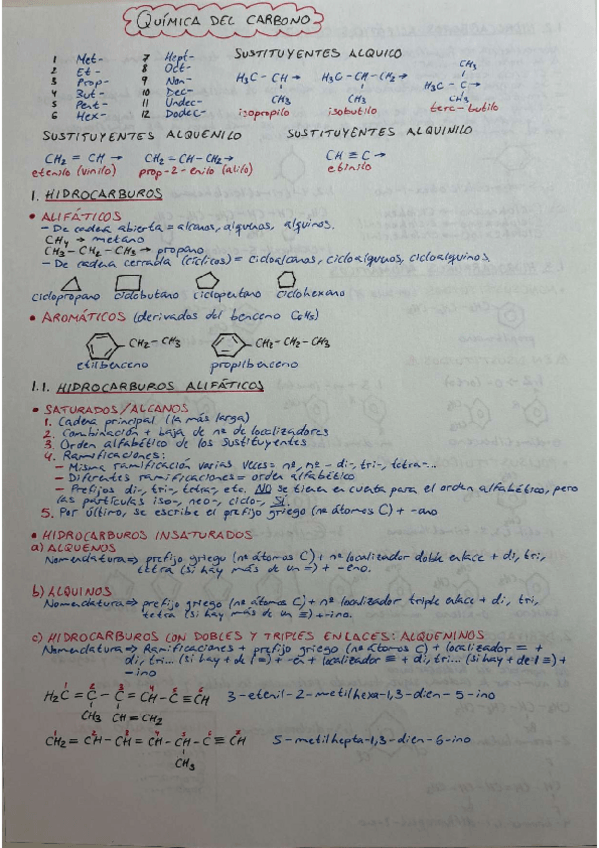 QUÍMICA DEL CARBONO
1 Met- 7 Hept-
2 Et- 8 Oct-
3 Prop- 9 Non-
4 But- 10 Dec-
5 Pent- 11 Undec-
6 Hex- 12 Dodec-
SUSTITUYENTES ALQUICO
H₃C – CH → H₃C – CH – CH₂ → H₃C – C →
CH₃ CH₃ CH₃ CH₃
isopropilo isobutilo terc-butilo
SUSTITUYENTES ALQUENILO SUSTITUYENTES ALQUINILO
CH₂ = CH → CH₂ = CH – CH₂ → CH ≡ C →
etenilo (vinilo) prop-2-enilo (alilo) etinilo
1. HIDROCARBUROS
• ALIFÁTICOS
– De cadena abierta = alcanos, alquenos, alquinos.
CH₄ → metano
CH₃ – CH₂ – CH₃ → propano
– De cadena cerrada (cíclicos) = cicloalcanos, cicloalquenos, cicloalquinos.
ciclopropano ciclobutano ciclopentano ciclohexano
• AROMÁTICOS (derivados del benceno C₆H₅)
CH₂ – CH₃ CH₂ – CH₂ – CH₃
etilbenceno propilbenceno
1.1. HIDROCARBUROS ALIFÁTICOS
• SATURADOS/ALCANOS
1. Cadena principal (la más larga)
2. Combinación + baja de nº de localizadores
3. Orden alfabético de los sustituyentes
4. Ramificaciones:
– Misma ramificación varias veces = nº, nº – di-, tri-, tetra-...
– Diferentes ramificaciones = orden alfabético
– Prefijos di-, tri-, tetra-, etc. NO se tienen en cuenta para el orden alfabético, pero
las partículas iso-, neo-, ciclo-, SÍ.
5. Por último, se escribe el prefijo griego (nº átomos C) + -ano
• HIDROCARBUROS INSATURADOS
a) ALQUENOS
Nomenclatura ⇒ prefijo griego (nº átomos C) + nº localizador doble enlace + di, tri,
tetra (si hay más de un =) + -eno.
b) ALQUINOS
Nomenclatura ⇒ prefijo griego (nº átomos C) + nº localizador triple enlace + di, tri,
tetra (si hay más de un ≡) + -ino.
c) HIDROCARBUROS CON DOBLES Y TRIPLES ENLACES: ALQUENINOS
Nomenclatura ⇒ Ramificaciones + prefijo griego (nº átomos C) + localizador = +
di, tri... (si hay + de 1 =) + -en + localizador ≡ + di, tri... (si hay + de 1 ≡) +
-ino
1 2 3 4 5 6
H₂C = C – C = CH – C ≡ CH 3-etenil-2-metilhexa-1,3-dien-5-ino
CH₃ CH = CH₂
1 2 3 4 5 6 7
CH₂ = CH – CH = CH – CH – C ≡ CH 5-metilhepta-1,3-dien-6-ino
CH₃